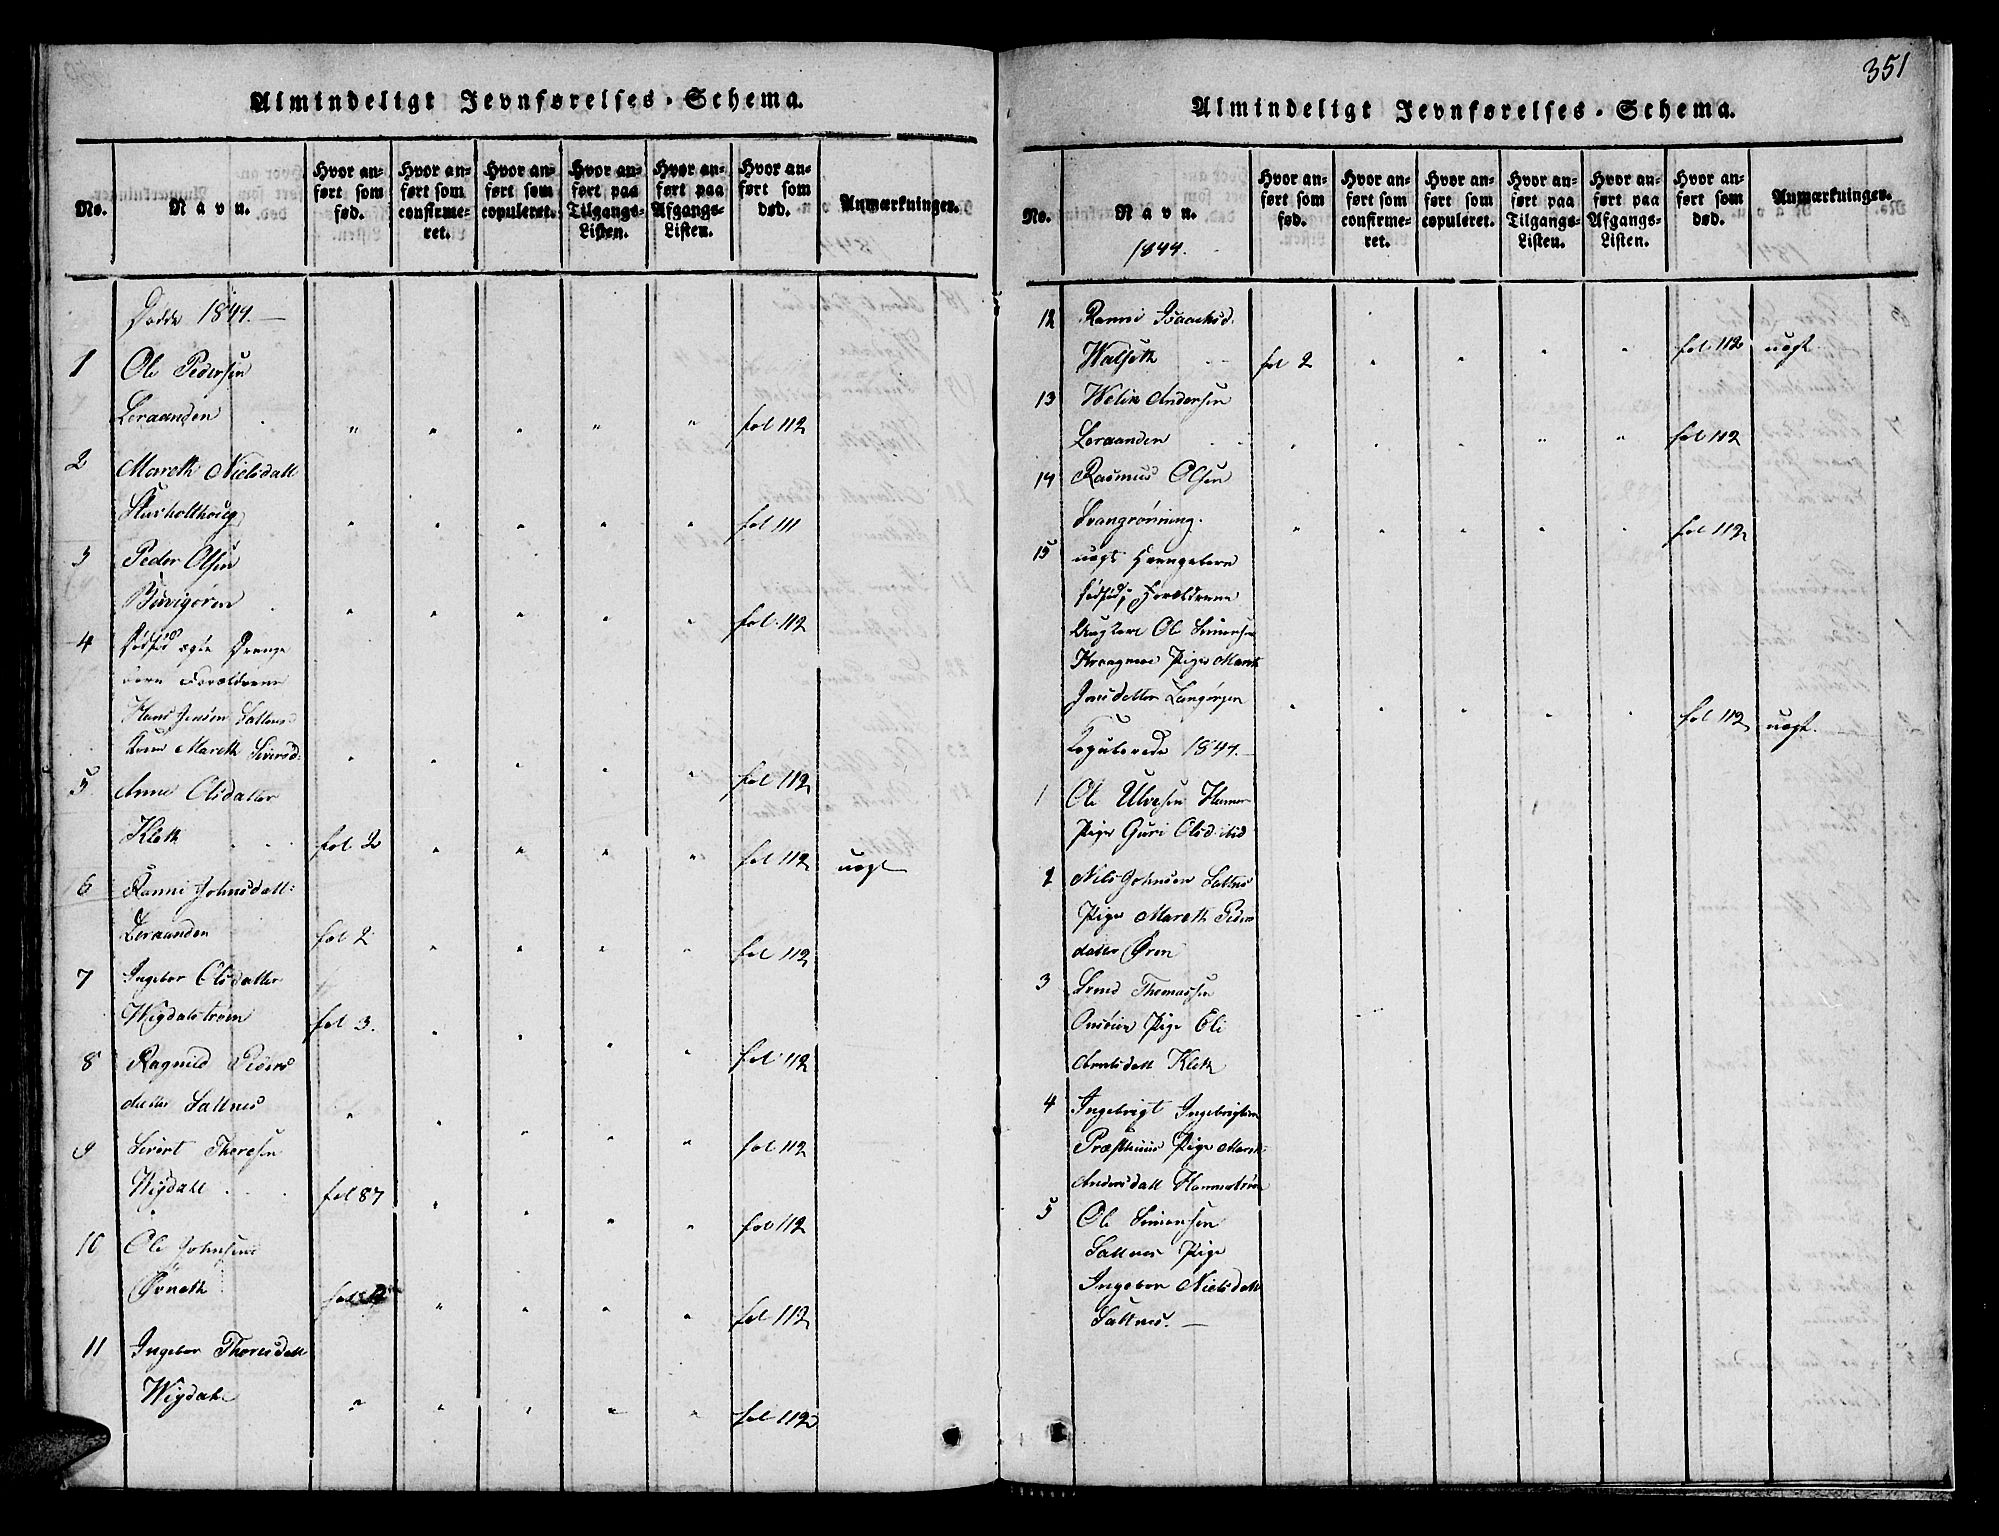 Almindeligt Jevnførelses-Schema.
No.
Navn.
Hvor anført som fød.
Hvor anført som confirmeret.
Hvor anført som copuleret.
Hvor anført paa Tilgangs-Listen.
Hvor anført paa Afgangs-Listen.
Hvor anført som død.
Anmærkninger.
Dødde 1844.
1 Ole Pedersen
Leraanden " " " " " fol 112
2 Mareth Nielsdatt
" " " " " fol 111
3 Peder Olsen
" " " " " fol. 112
4 Drenge
Forældrene
Hans Jensen Saltnes
Mareth Siversd: " " " " " fol 112
5 Anne Olsdatter
Kleth fol 2 " " " " fol 112 uægt
6 Ranni Johnsdatt:
Leraanden fol 2 " " " " fol 112
7 Ingebor Olsdatter
Wigdalstrøm fol 3. " " " " fol. 112
8 Ragnild Peders
datter Saltnes " " " " " fol 112
9 Sivert Thoresen
Wigdahl fol 87 " " " " fol 112
10 Ole Johnsen
Ørneth fol " " " " fol 112
11 Ingebor Thoresdatt
Wigdahl " " " " " fol 112
351
Almindeligt Jevnførelses-Schema.
No.
Navn.
1844.
Hvor anført som fød.
Hvor anført som confirmeret.
Hvor anført som copuleret.
Hvor anført paa Tilgangs-Listen.
Hvor anført paa Afgangs-Listen.
Hvor anført som død.
Anmærkningen.
12 Ranni Isaachsd.
Walseth fol 2 " " " " fol 112 uægt.
13 Andersen
Leraanden " " " " " fol 112
14 Rasmus Olsen
Svangrønning. " " " " " fol 112
15 uægt Drengebarn
Forældrene
Ungkarl Ole Simonsen
Pige Mareth
Jensdatter " " " " " fol 112 uægt.
Copulerede 1844.
1 Ole Ulvesen Hamer
Pige Guri Olsd: ibid
2 Nils Johnsen Saltnes
Pige Mareth Peders
datter Øren
3 Svend Thomassen
Pige Eli
Arntsdatt Kleth
4 Ingebrigt Ingebrigtsen
Præsthuus Pige Mareth
Andersdatt
5 Ole Simonsen
Saltnes Pige
Ingebor Nielsdatt
Saltnes.